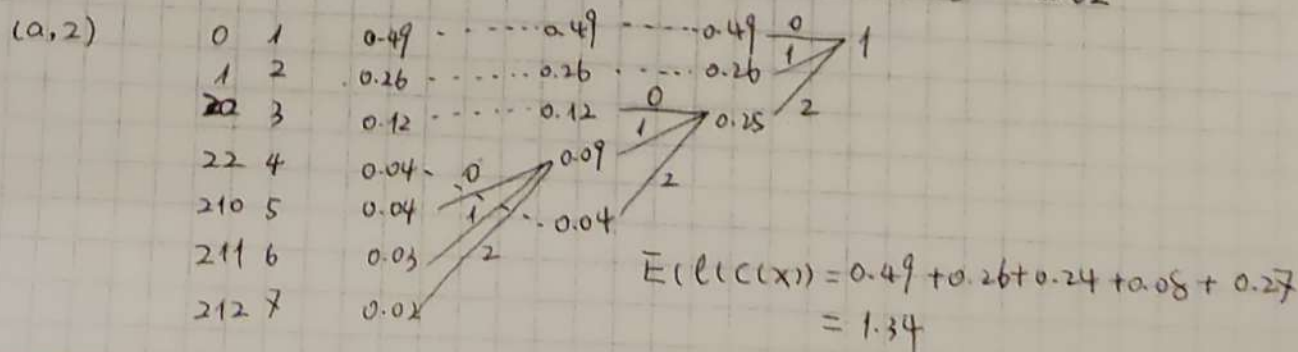 (a,2) 0 1 0.49 0.49 0.49 0 1
1 2 0.26 0.26 0.26 1
20 3 0.12 0.12 0 0.25 2
22 4 0.04 0 0.09 1
210 5 0.04 1 0.04 2
211 6 0.03 2 E(l(C(X)) = 0.49 + 0.26 + 0.24 + 0.08 + 0.27
212 7 0.02 = 1.34